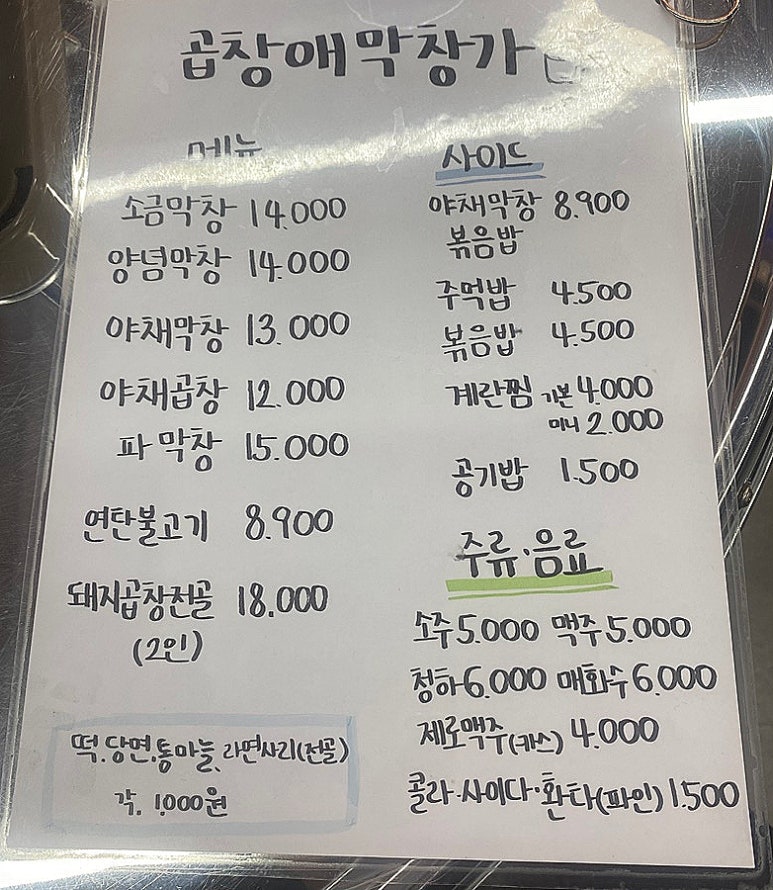 곱창애막창가
메뉴
소금막창 14.000
양념막창 14.000
야채막창 13.000
야채곱창 12.000
파막창 15.000
연탄불고기 8.900
돼지곱창전골 18.000
(2인)
떡.당면.통마늘.라면사리(전골)
각. 1.000원
사이드
야채막창 8.900
볶음밥
주먹밥 4.500
볶음밥 4.500
계란찜 기본 4.000
미니 2.000
공기밥 1.500
주류·음료
소주 5.000 맥주 5.000
청하 6.000 매화수 6.000
제로맥주(카스) 4.000
콜라·사이다·환타(파인) 1.500